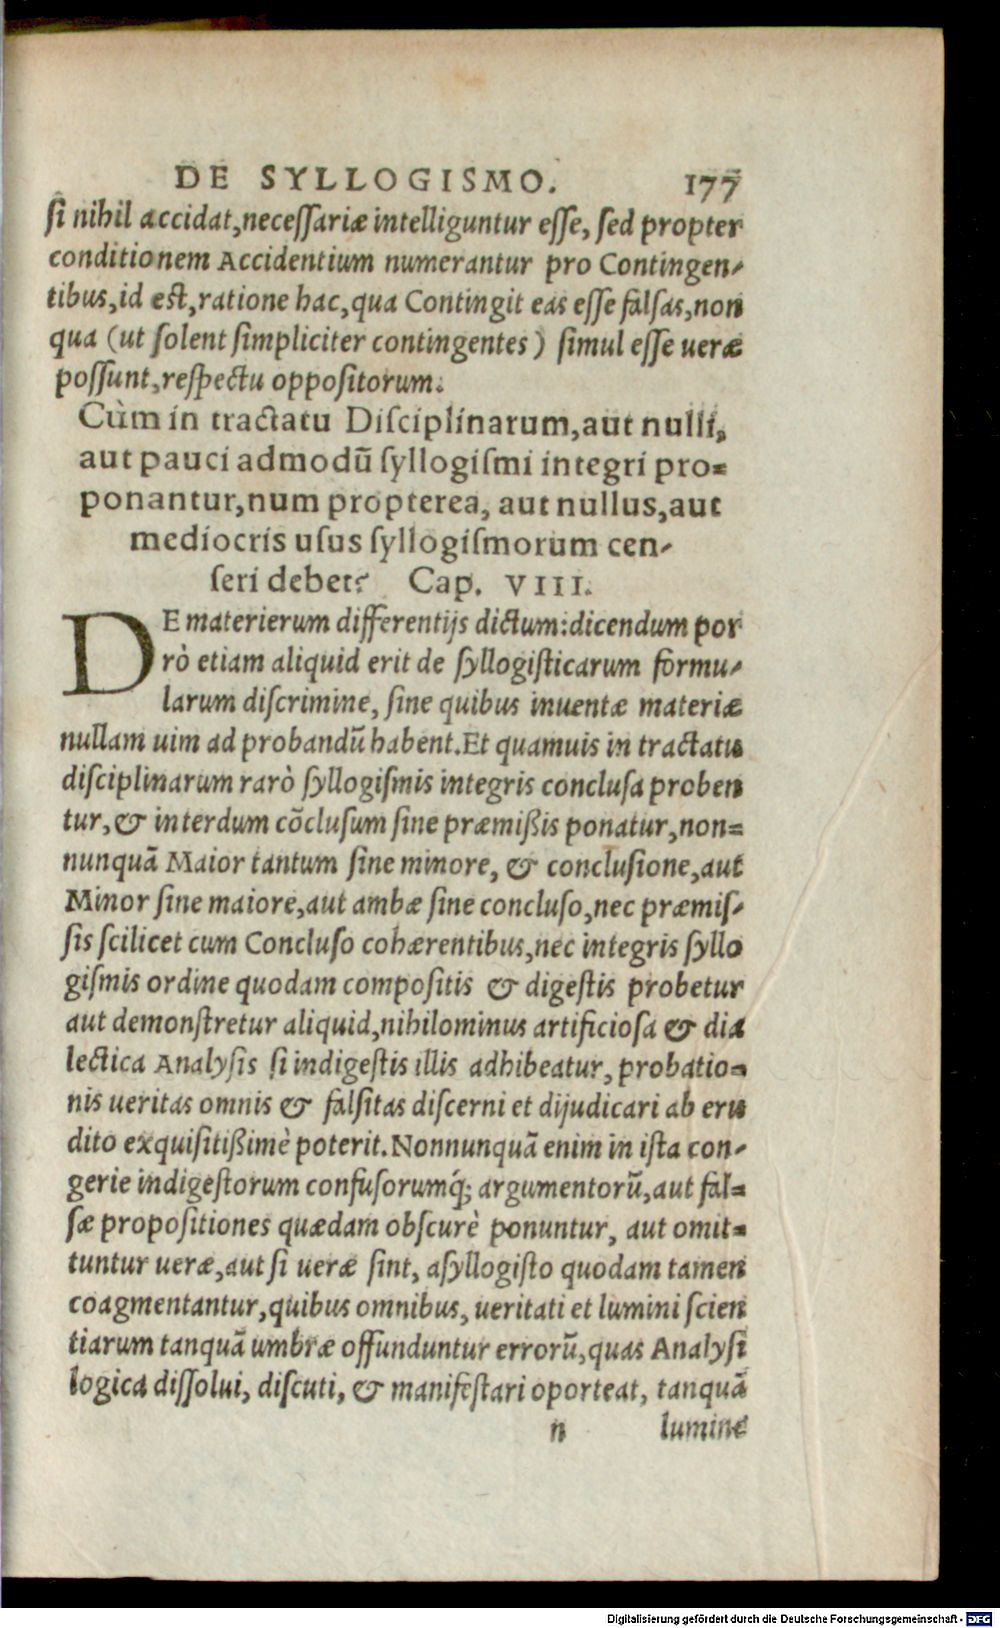 DE SYLLOGISMO. 177
si nihil accidat,necessariæ intelliguntur esse, sed propter
conditionem Accidentium numerantur pro Contingen-
tibus,id est,ratione hac,qua Contingit eas esse falsas,non
qua (ut solent simpliciter contingentes) simul esse ueræ
possunt,respectu oppositorum.
Cùm in tractatu Disciplinarum,aut nulli,
aut pauci admodũ syllogismi integri pro=
ponantur,num propterea, aut nullus,aut
mediocris usus syllogismorum cen-
seri debet? Cap. VIII.
DE materierum differentijs dictum:dicendum por
rò etiam aliquid erit de syllogisticarum formu-
larum discrimine, sine quibus inuentæ materiæ
nullam uim ad probandũ habent.Et quamuis in tractatu
disciplinarum rarò syllogismis integris conclusa proben
tur,& interdum cõclusum sine præmißis ponatur,non=
nunquã Maior tantum sine minore, & conclusione,aut
Minor sine maiore,aut ambæ sine concluso,nec præmis-
sis scilicet cum Concluso cohærentibus,nec integris syllo
gismis ordine quodam compositis & digestis probetur
aut demonstretur aliquid,nihilominus artificiosa & dia
lectica Analysis si indigestis illis adhibeatur, probatio=
nis ueritas omnis & falsitas discerni et dijudicari ab eru
dito exquisitißimè poterit.Nonnunquã enim in ista con-
gerie indigestorum confusorumq́; argumentorũ,aut fal=
sæ propositiones quædam obscurè ponuntur, aut omit=
tuntur ueræ,aut si ueræ sint, asyllogisto quodam tamen
coagmentantur,quibus omnibus, ueritati et lumini scien
tiarum tanquã umbræ offunduntur errorũ,quas Analysi
logica dissolui, discuti, & manifestari oporteat, tanquã
n lumine
Digitalisierung gefördert durch die Deutsche Forschungsgemeinschaft - DFG